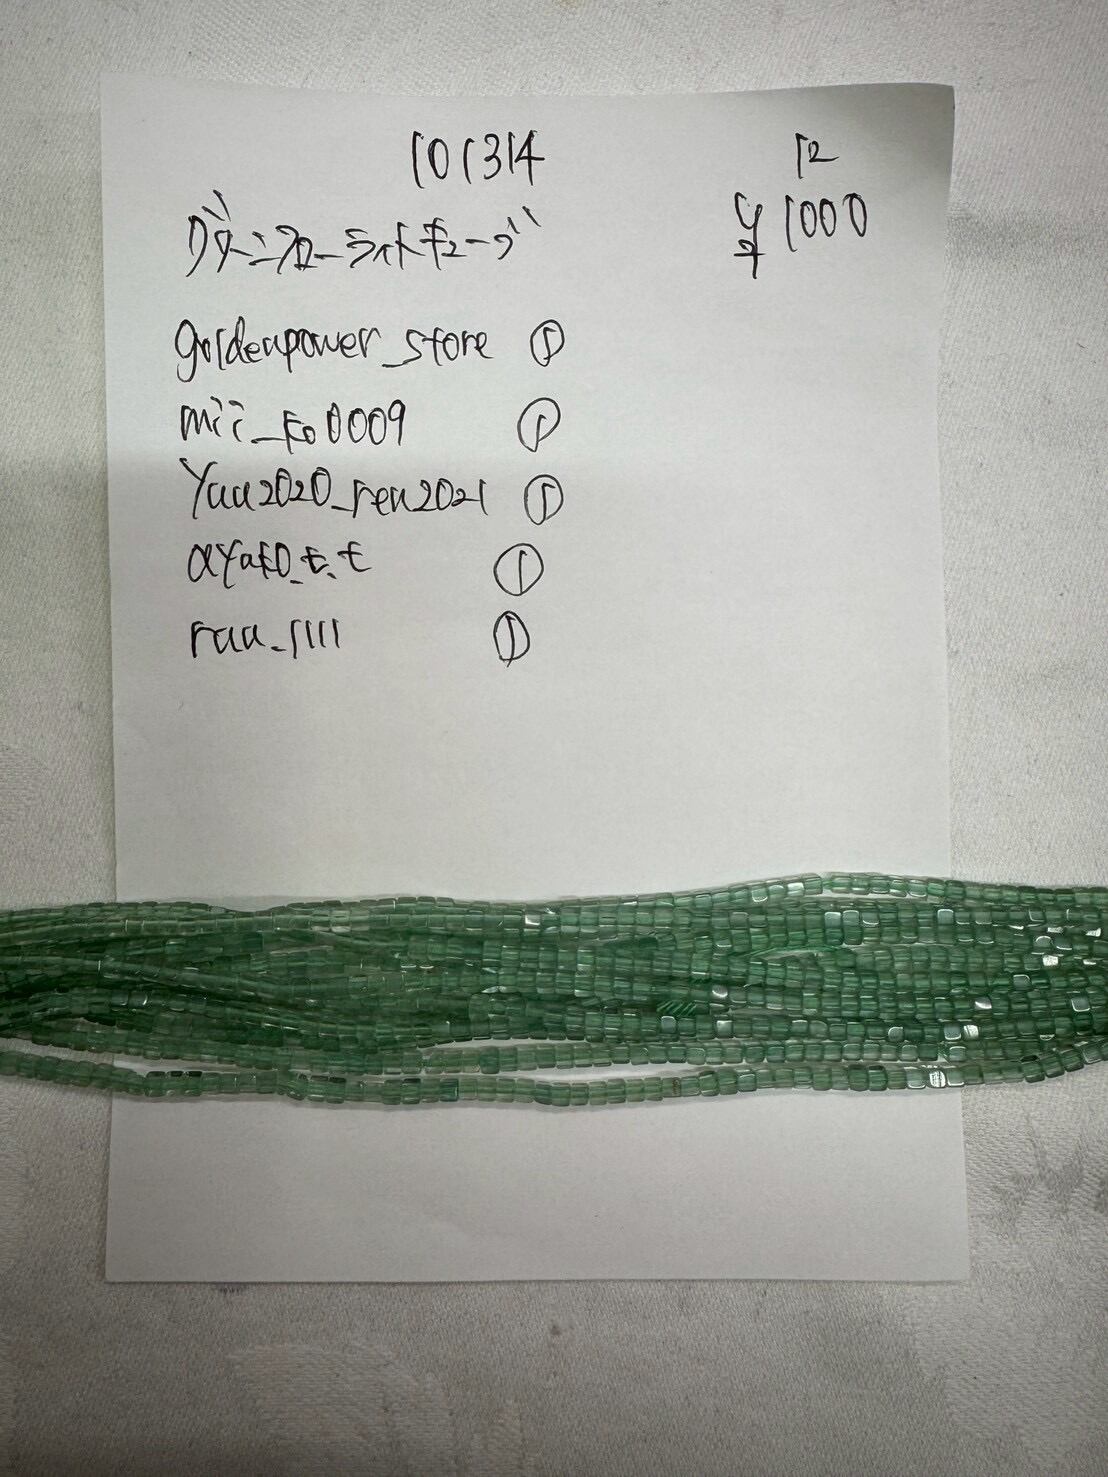 101314
12
グリーンフローライトキューブ
¥1000
goldenpower_store ①
mii_ko0009 ①
Yuu2020_ren2021 ①
ayako_t.t ①
ruu_1111 ①